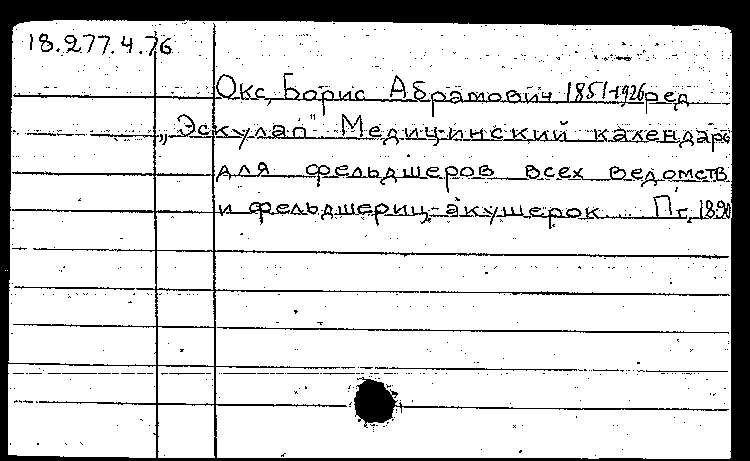 18.277.4.76
Окс, Борис Абрамович 1851-1926 ред
„Эскулап" Медицинский календарь
для фельдшеров всех ведомств
и фельдшериц-акушерок Пг, 1890